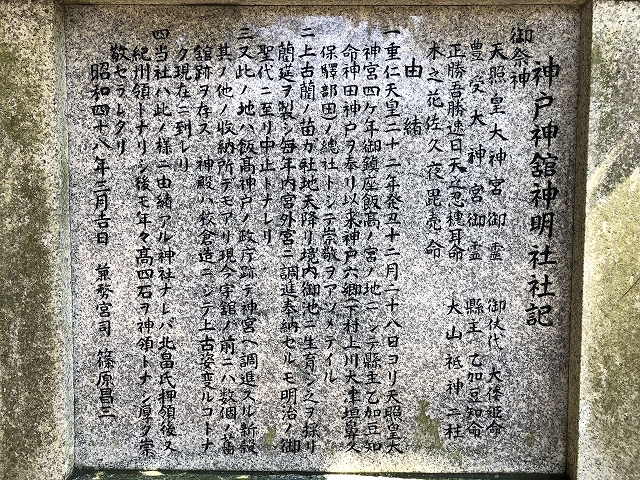 神戸神舘神明社社記
御祭神
天照皇大神宮御霊　御伏代　大倭姫命
豊受大神宮御霊　縣主　乙加豆知命
正勝吾勝速日天之忍穂耳命
木之花佐久夜毘売命　大山祗神二柱
由緒
一垂仁天皇二十二年癸丑十二月二十八日ヨリ天照皇大
神宮四ケ年御鎮座飯高ノ宮ノ地ニシテ縣主乙加豆知
命神田神戸ヲ奉リ以来神戸六郷(下村上川大津垣鼻久
保驛部田)ノ總社トシテ崇敬ヲアツメテイル
二上古蘭ノ苗ガ社地天降リ境内御池ニ生育シ之ヲ採リ
蘭莚ヲ製シ毎年内宮外宮ニ調進奉納セルモ明治ノ御
聖代ニ至リ中止トナレリ
三又此ノ地ハ飯高神戸ノ政庁跡テ神宮ヘ調進スル新穀
其ノ他ノ収納所デモアリ現今字舘ノ前ニハ数個ノ舊
舘跡ヲ存ス 神殿ハ校倉造ニシテ上古姿変ルコトナ
ク現在ニ到レリ
四当社ハ此ノ様ニ由緒アル神社ナレバ北畠氏押領後又
紀州領トナリシ後モ年々高四石ヲ神領トナシ厚ク崇
敬セラレタリ
昭和四十八年三月吉日　兼務宮司　篠原昌三